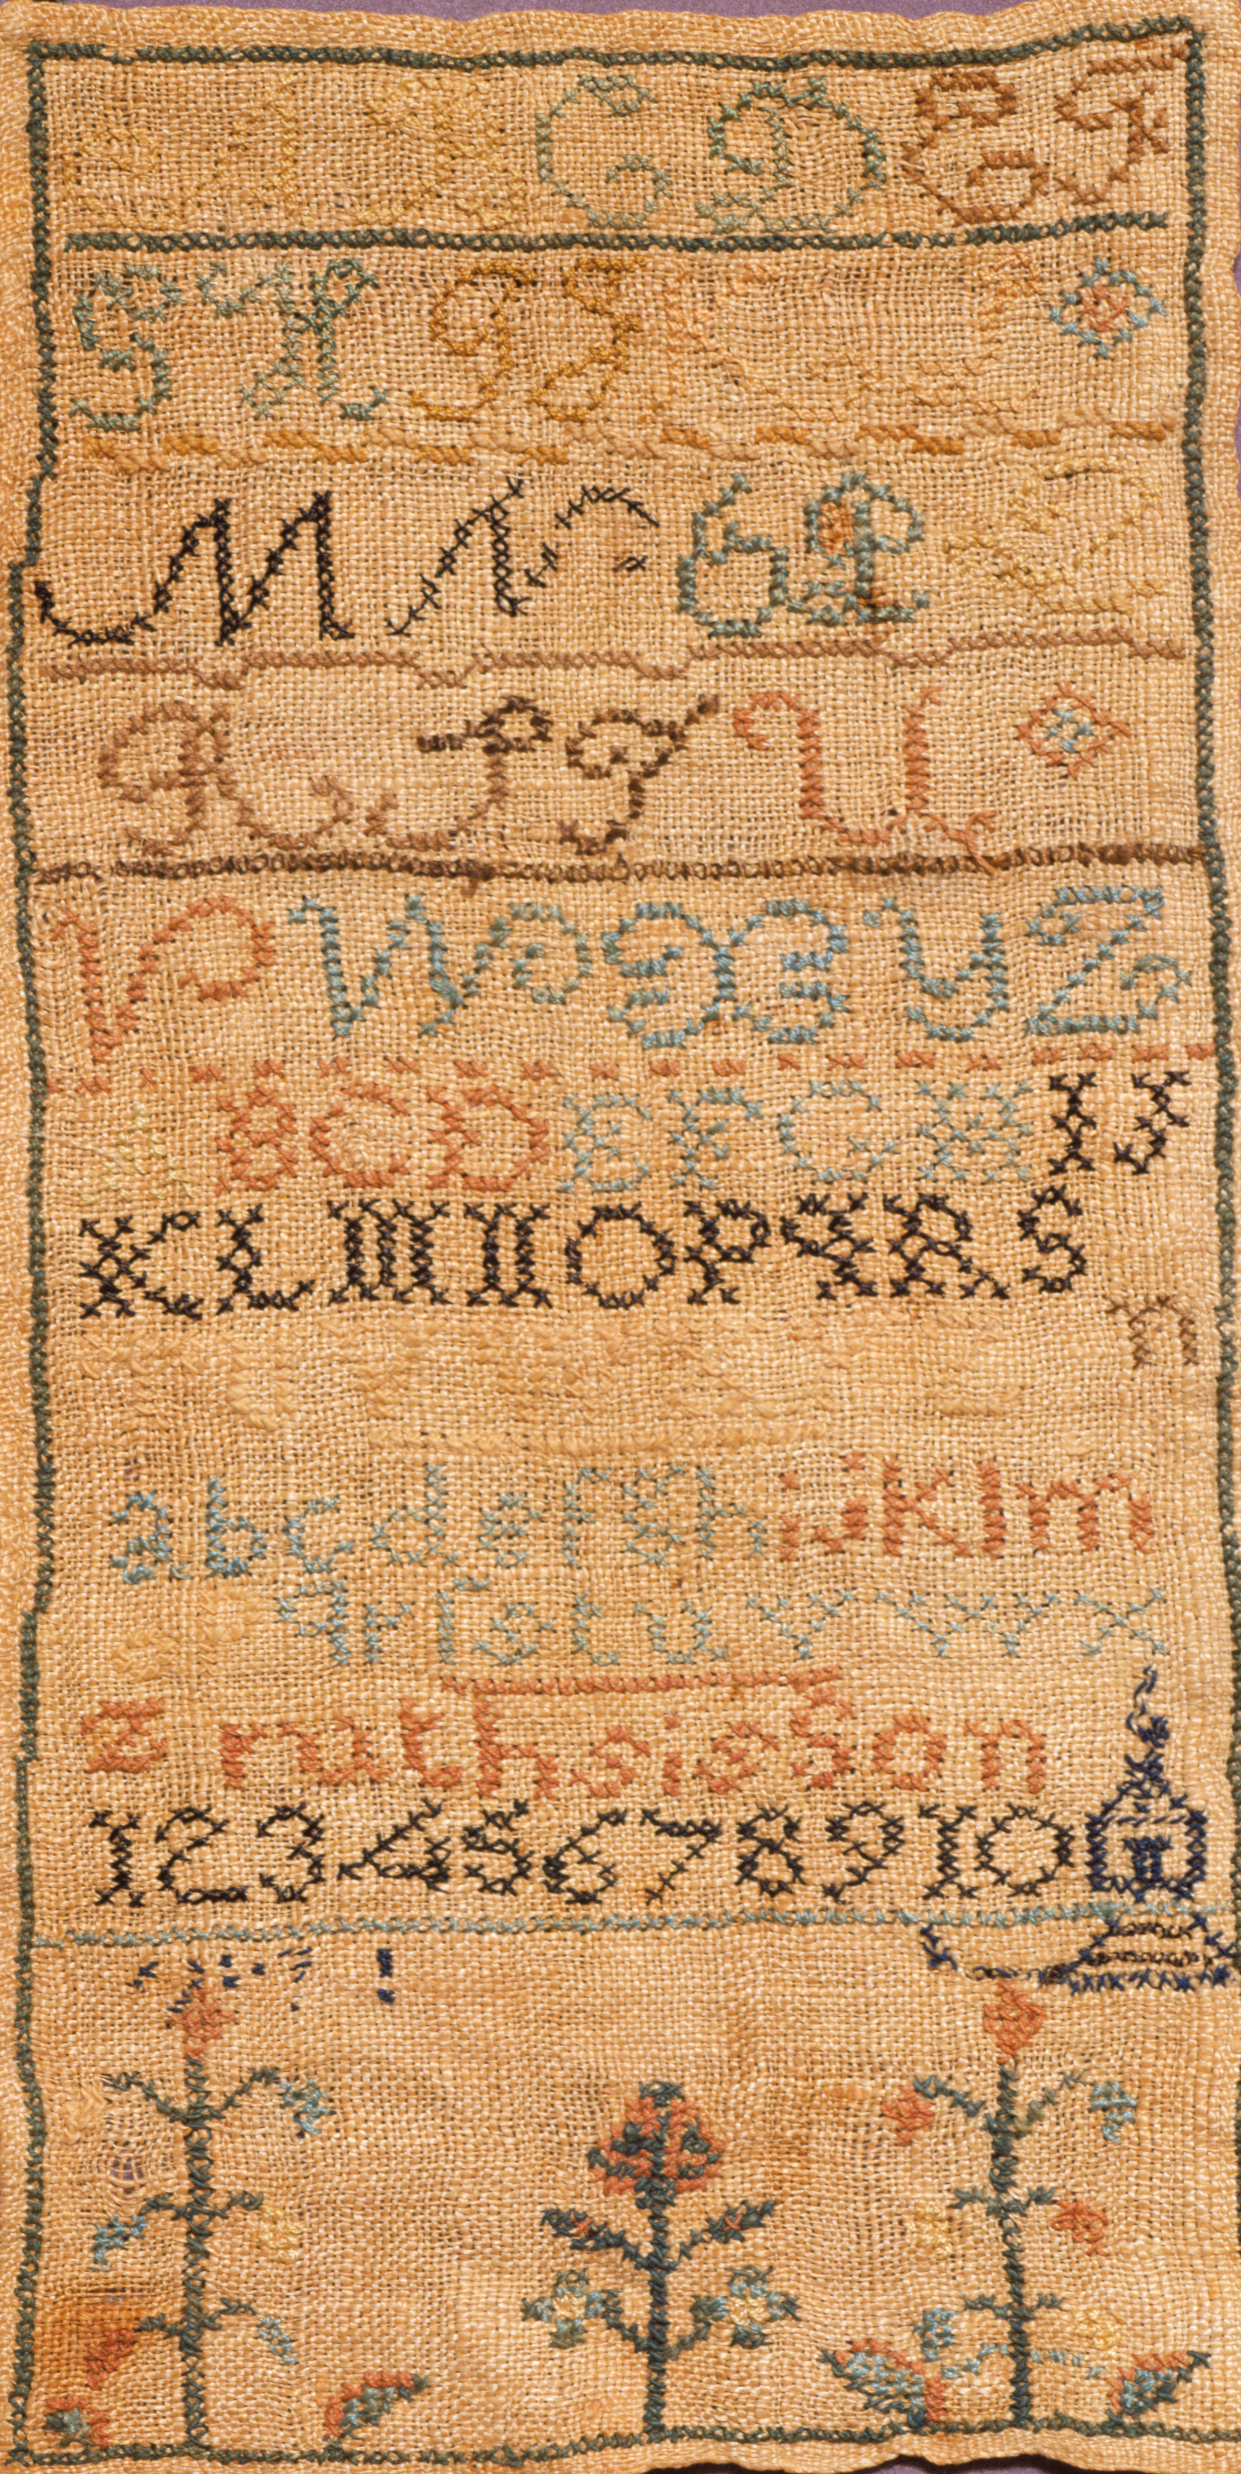 A B C D E F
G H I J K
M N O P Q
R S T U
V W X Y Z
A B C D E F G H I J
K L M N O P Q R S
n
a b c d e f g h i j k l m
q r ſ s t u v w x
z ruth sisson
1 2 3 4 5 6 7 8 9 10